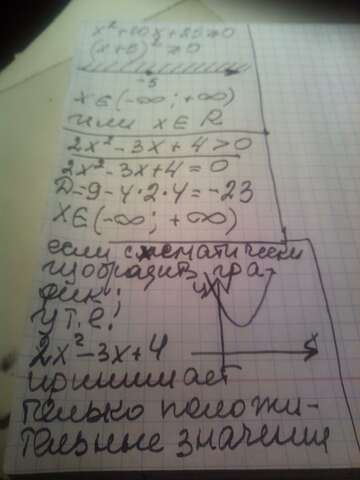 x²+10x+25≥0
(x+5)²≥0
-5
x∈(-∞; +∞)
или x∈R
2x²-3x+4>0
2x²-3x+4=0
D=9-4·2·4=-23
x∈(-∞; +∞)
если схематически
изобразить гра-
фик:
y
x
и т.е.
2x²-3x+4
принимает
только положи-
тельные значения